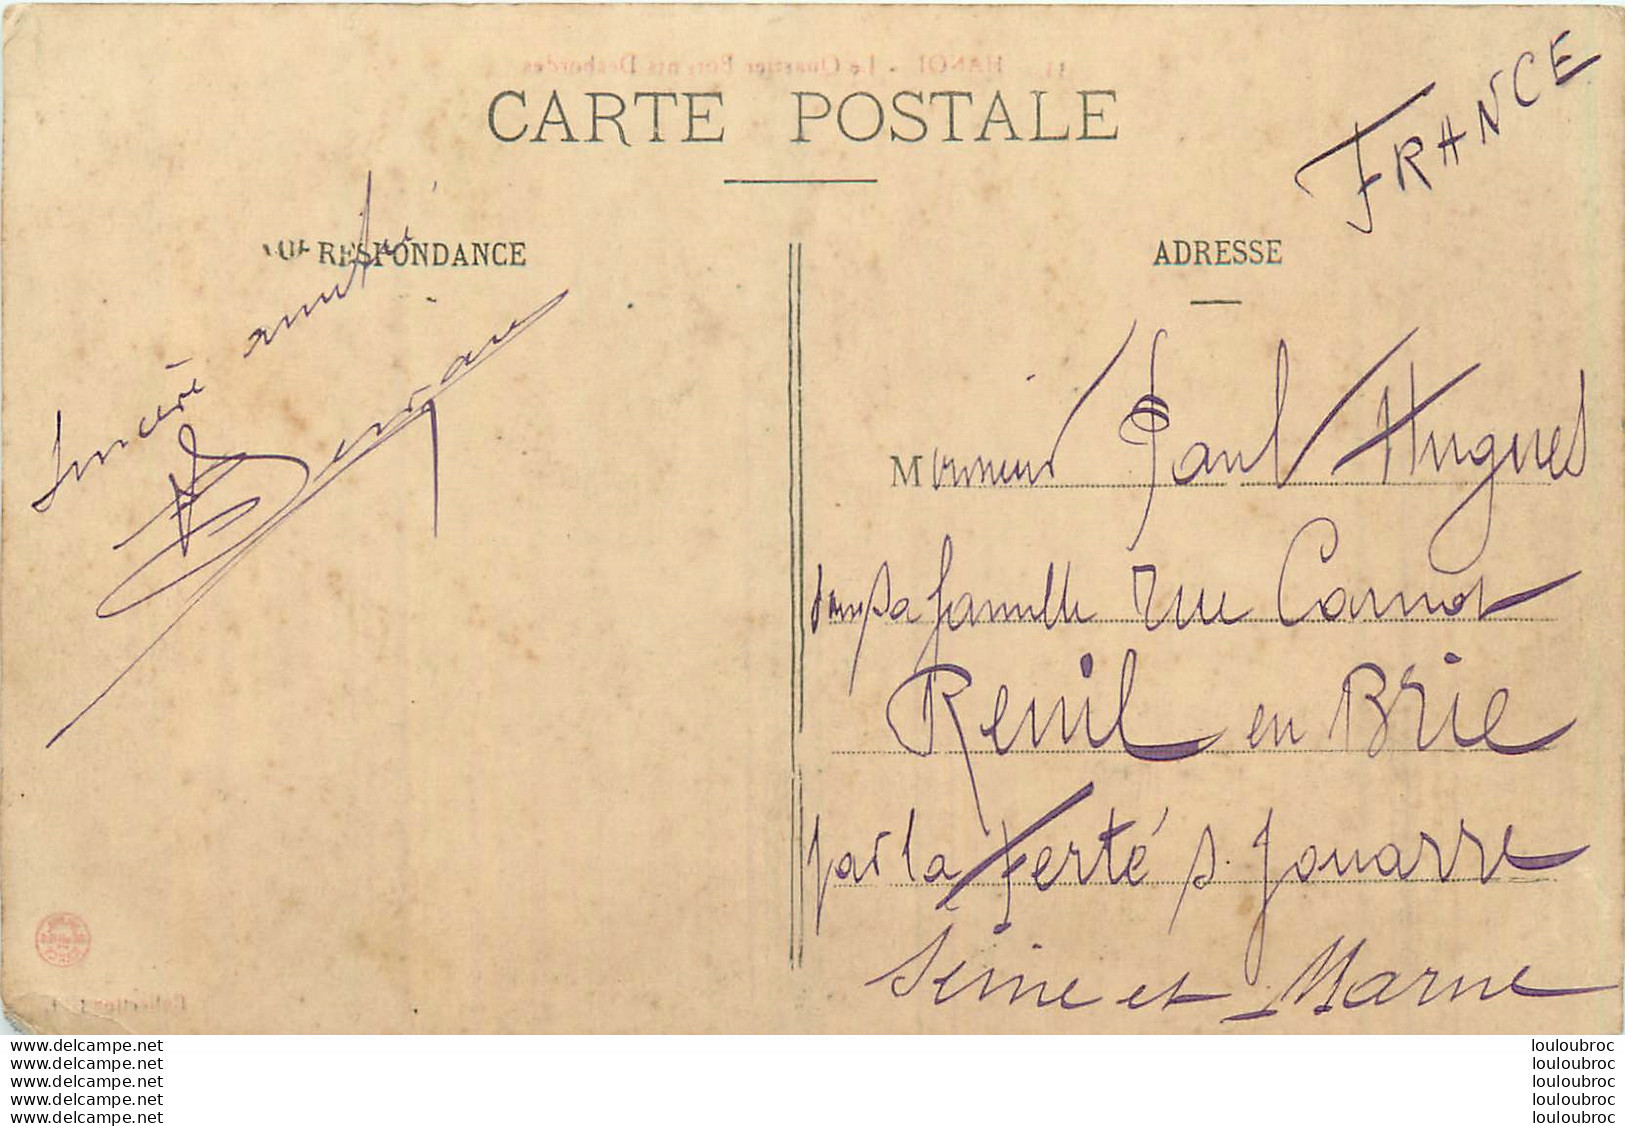 HANOI - Le Quartier Desbordes
CARTE POSTALE
FRANCE
RESPONDANCE
ADRESSE
Sincère amitié
Monsieur Paul Hugues
dans sa famille rue Carnot
Reuil en Brie
par la Ferté s. Jouarre
Seine et Marne
Collection
www.delcampe.net louloubroc
www.delcampe.net louloubroc
www.delcampe.net louloubroc
www.delcampe.net louloubroc
www.delcampe.net louloubroc